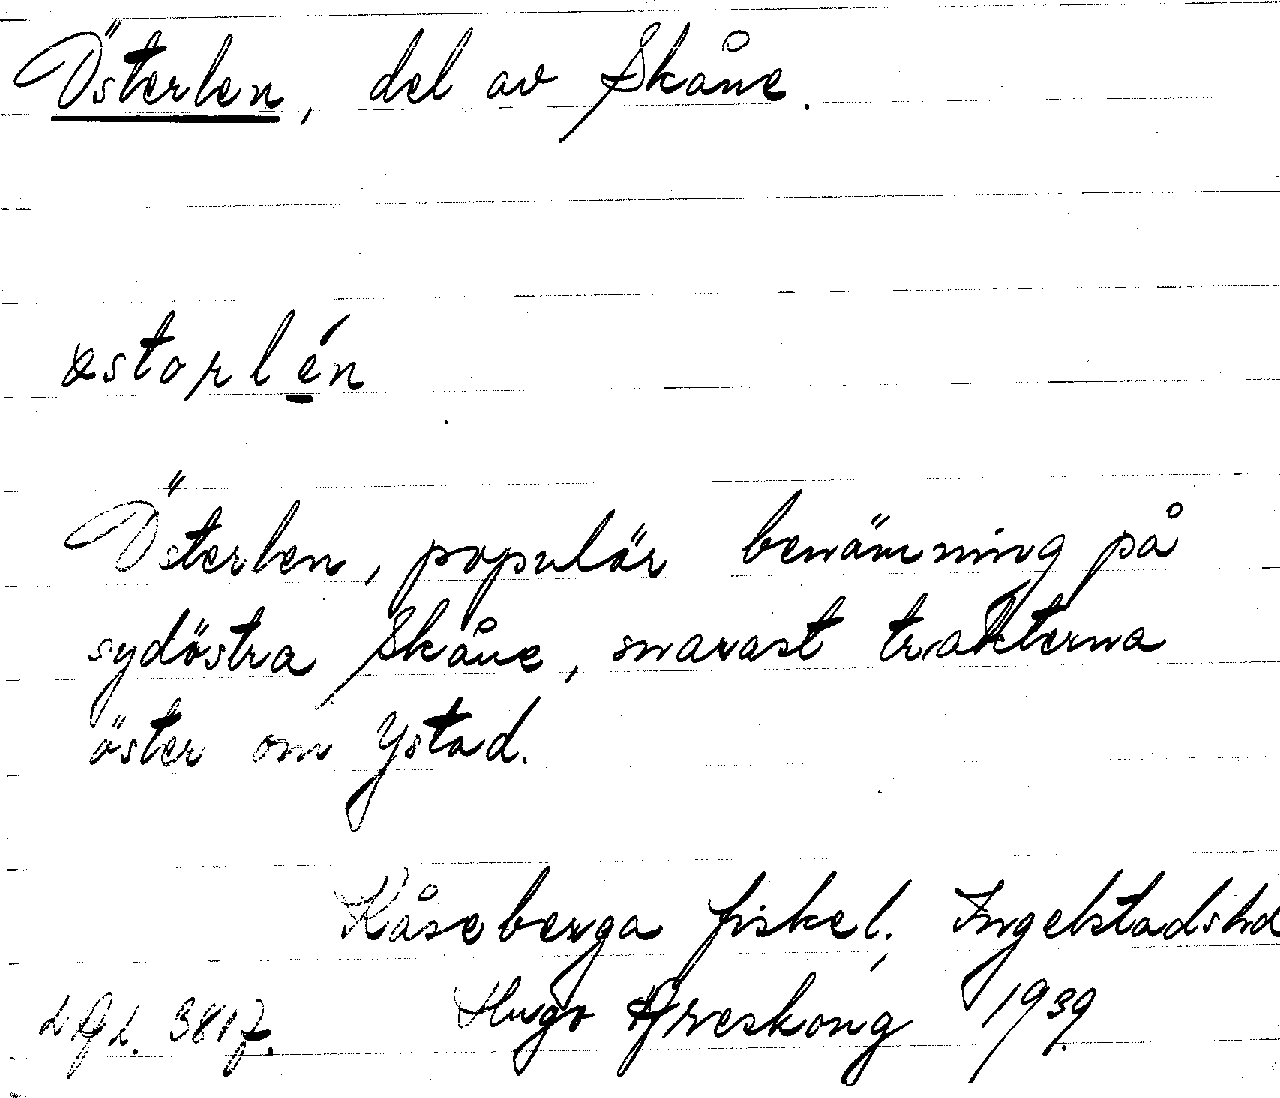 Österlen, del av Skåne.
østorlén
Österlen, populär benämning på
sydöstra Skåne, snarast trakterna
öster om Ystad.
Kåseberga fiskel., Ingelstads hd
Hugo Areskoug 1939.